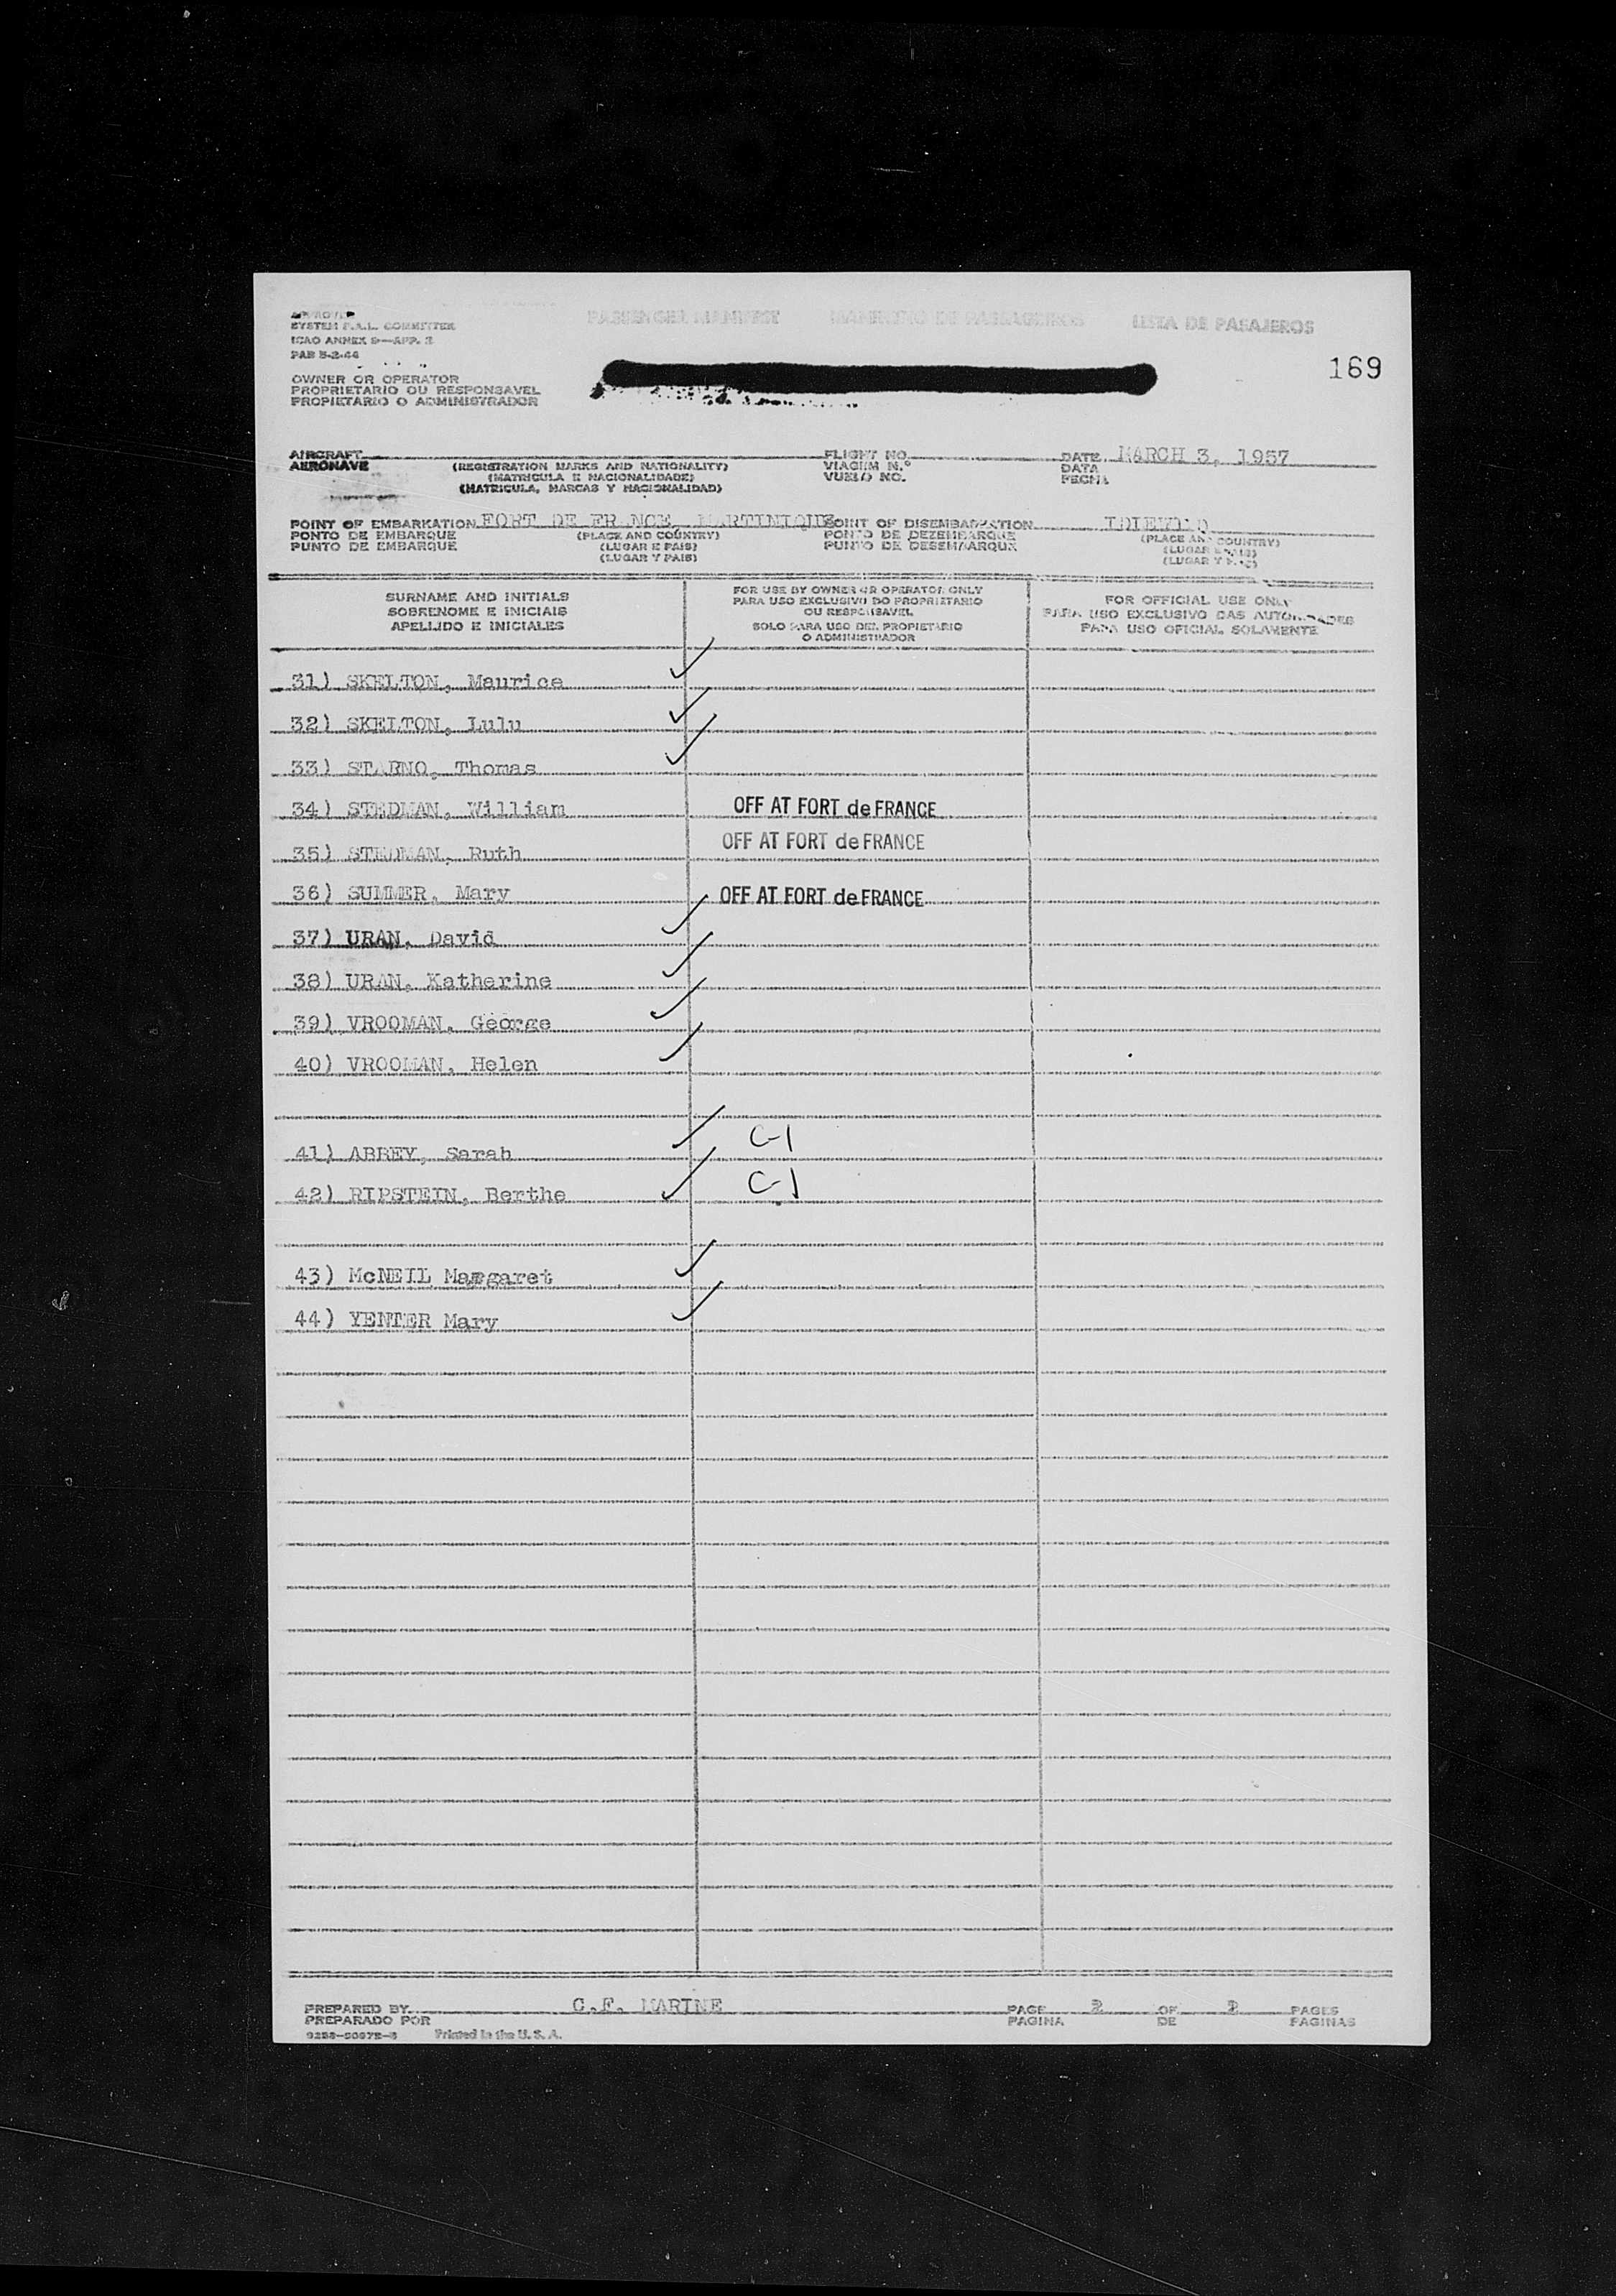 APPROVED PASSENGER MANIFEST MANIFESTO DE PASSAGEIROS LISTA DE PASAJEROS
SYSTEM F.A.L. COMMITTEE
ICAO ANNEX 9—APP. 2
PAB 5-2-44
169
OWNER OR OPERATOR
PROPRIETARIO OU RESPONSAVEL
PROPIETARIO O ADMINISTRADOR
AIRCRAFT FLIGHT NO. DATE MARCH 3, 1957
AERONAVE (REGISTRATION MARKS AND NATIONALITY) VIAGEM N.º DATA
(MATRICULA E NACIONALIDADE) VUELO NO. FECHA
(MATRICULA, MARCAS Y NACIONALIDAD)
POINT OF EMBARKATION FORT DE FRANCE, MARTINIQUE POINT OF DISEMBARKATION IDLEWILD
PONTO DE EMBARQUE (PLACE AND COUNTRY) PONTO DE DEZEMBARQUE (PLACE AND COUNTRY)
PUNTO DE EMBARQUE (LUGAR E PAIS) PUNTO DE DESEMBARQUE (LUGAR E PAIS)
(LUGAR Y PAIS) (LUGAR Y PAIS)
SURNAME AND INITIALS
SOBRENOME E INICIAIS
APELLIDO E INICIALES
FOR USE BY OWNER OR OPERATOR ONLY
PARA USO EXCLUSIVO DO PROPRIETARIO
OU RESPONSAVEL
SOLO PARA USO DEL PROPIETARIO
O ADMINISTRADOR
FOR OFFICIAL USE ONLY
PARA USO EXCLUSIVO DAS AUTORIDADES
PARA USO OFICIAL SOLAMENTE
31) SKELTON, Maurice ✓
32) SKELTON, Lulu ✓
33) STARNO, Thomas ✓
34) STEDMAN, William OFF AT FORT de FRANCE
35) STEDMAN, Ruth OFF AT FORT de FRANCE
36) SUMMER, Mary OFF AT FORT de FRANCE
37) URAN, David ✓
38) URAN, Katherine ✓
39) VROOMAN, George ✓
40) VROOMAN, Helen ✓
41) ABBEY, Sarah ✓ C-1
42) RIPSTEIN, Berthe ✓ C-1
43) McNEIL Margaret ✓
44) YENTER Mary ✓
PREPARED BY C.F. MARTNE PAGE 2 OF 2 PAGES
PREPARADO POR PAGINA DE PAGINAS
Printed in the U. S. A.